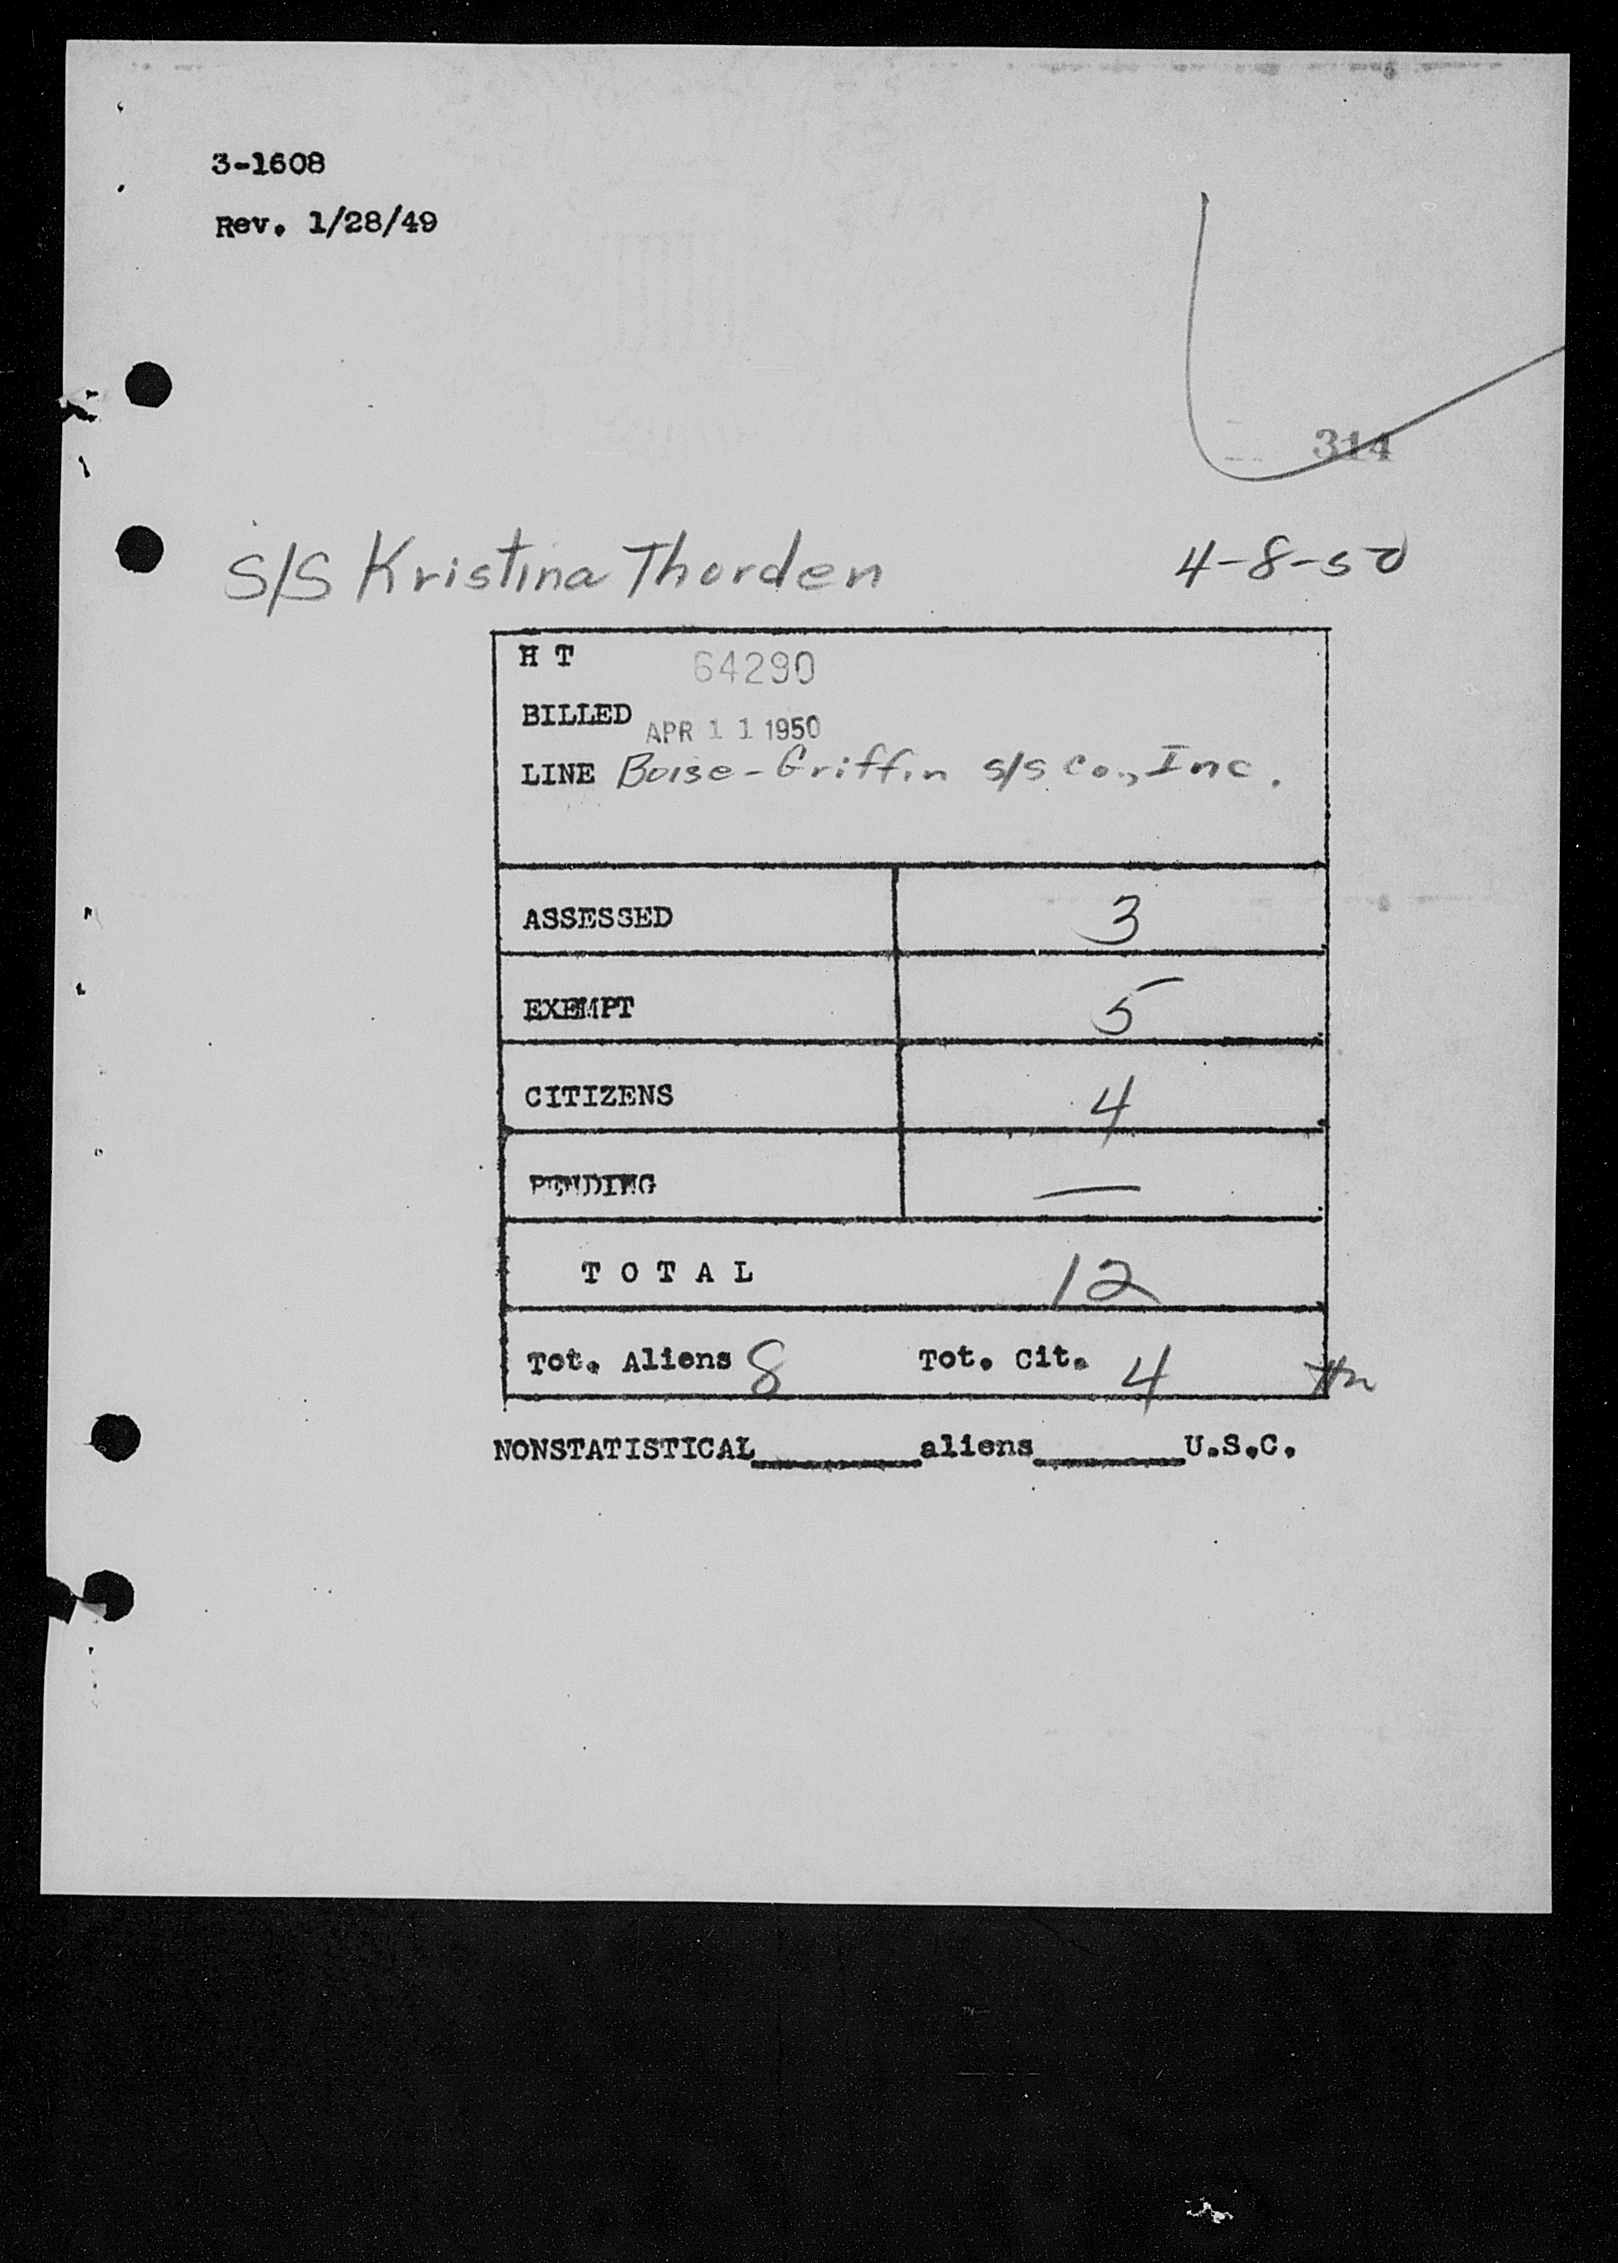 3-1608
Rev. 1/28/49
314
S/S Kristina Thorden 4-8-50
H T 64290
BILLED APR 11 1950
LINE Boise-Griffin s/s Co., Inc.
ASSESSED 3
EXEMPT 5
CITIZENS 4
PENDING —
TOTAL 12
Tot. Aliens 8 Tot. Cit. 4
NONSTATISTICAL________aliens_______U.S.C.